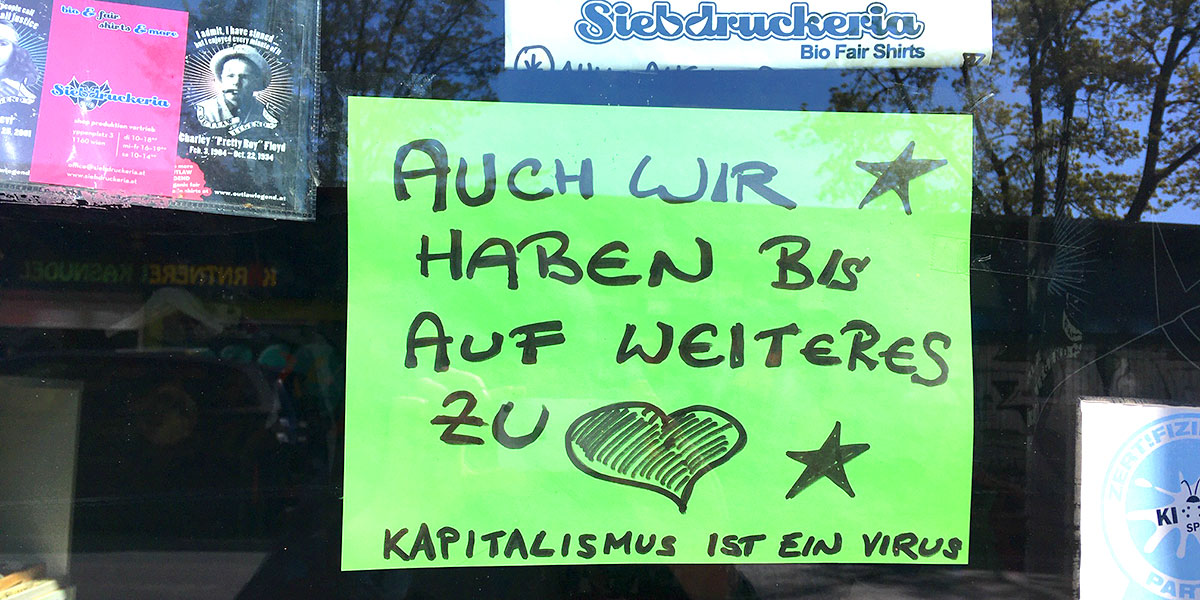 people call
all justice
bio & fair
shirts & more
Siebdruckeria
shop produktion vertrieb
yppenplatz 3
1160 wien
di 10-18°°
mi-fr 16-19°°
sa 10-14°°
office@siebdruckeria.at
www.siebdruckeria.at
I admit, I have sinned
but I enjoyed every minute of it
Charley "Pretty Boy" Floyd
Feb. 3, 1904 – Oct. 22, 1934
www.outlawlegend.at
Siebdruckeria
Bio Fair Shirts
AUCH WIR
HABEN BIS
AUF WEITERES
ZU
KAPITALISMUS IST EIN VIRUS
KASNUDEL
ZERTIFIZI
KI
SP
PAR